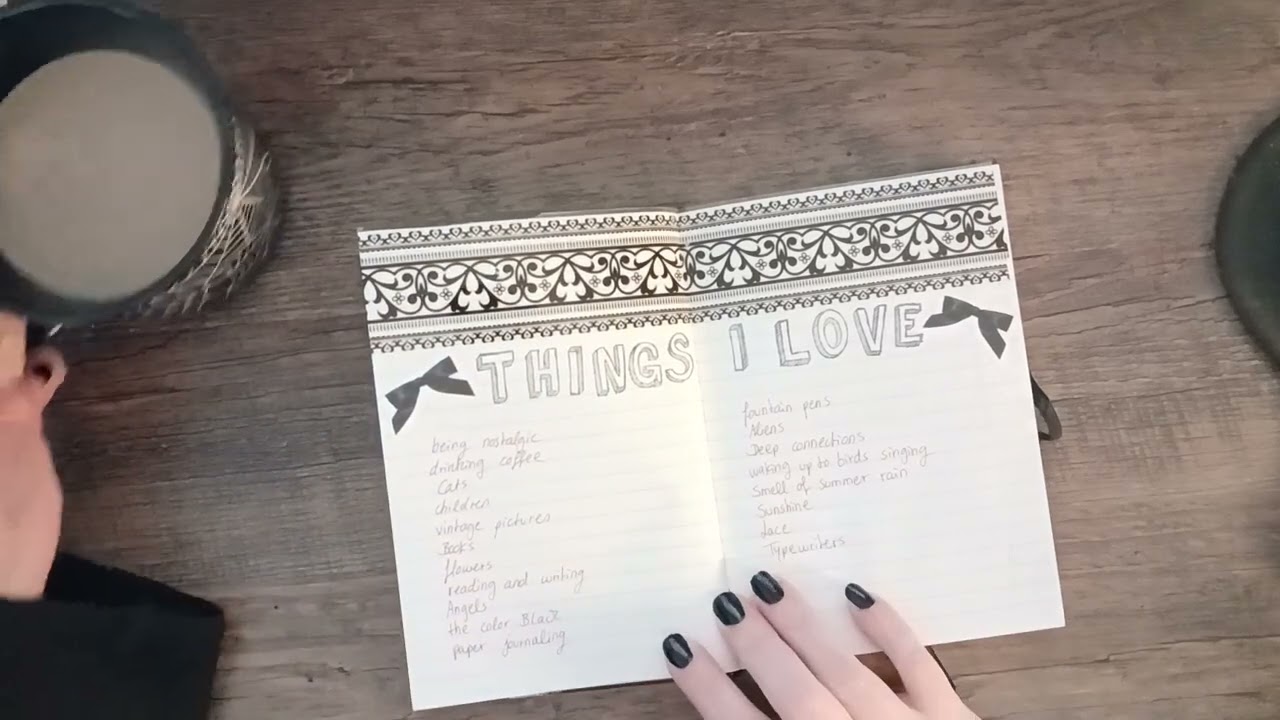 THINGS I LOVE
being nostalgic
drinking coffee
Cats
children
vintage pictures
Books
flowers
reading and writing
Angels
the color Black
paper journaling
fountain pens
Aliens
Deep connections
waking up to birds singing
Smell of summer rain
Sunshine
Lace
Typewriters